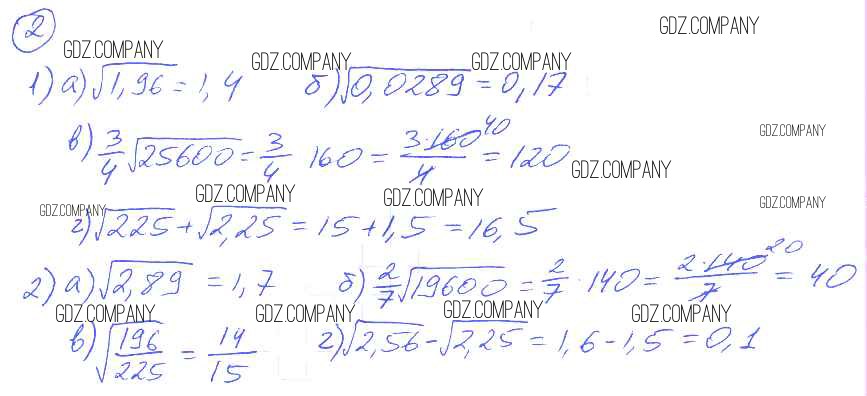 2
GDZ.COMPANY
GDZ.COMPANY GDZ.COMPANY GDZ.COMPANY
1) а) √1,96 = 1,4 б) √0,0289 = 0,17
GDZ.COMPANY
в) 3/4 √25600 = 3/4 160 = 3·160/4 40 = 120
GDZ.COMPANY
GDZ.COMPANY GDZ.COMPANY GDZ.COMPANY GDZ.COMPANY
г) √225 + √2,25 = 15 + 1,5 = 16,5
2) а) √2,89 = 1,7 б) 2/7 √19600 = 2/7 · 140 = 2·140/7 20 = 40
GDZ.COMPANY GDZ.COMPANY GDZ.COMPANY GDZ.COMPANY
в) √196/225 = 14/15 г) √2,56 - √2,25 = 1,6 - 1,5 = 0,1